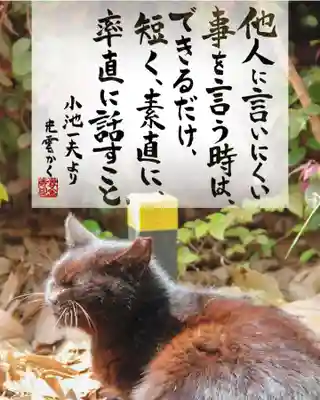 他人に言いにくい
事を言う時は、
できるだけ、
短く、素直に、
率直に話すこと
小池一夫より
光雲かく